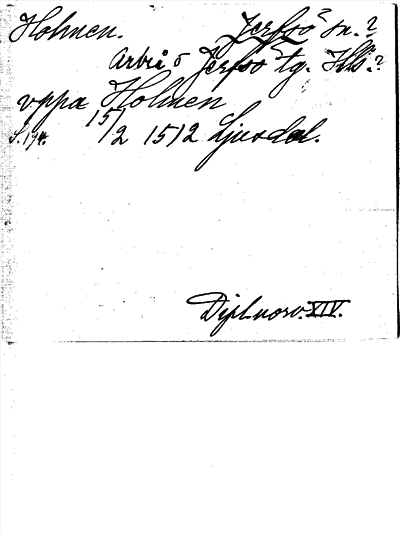 Holmen. Jerfsö? sn.?
Arbrå o Jerfsö tg. Hls.?
uppa Holmen
S. 174. 15/2 1512 Ljusdal.
Dipl. norv. XIV.